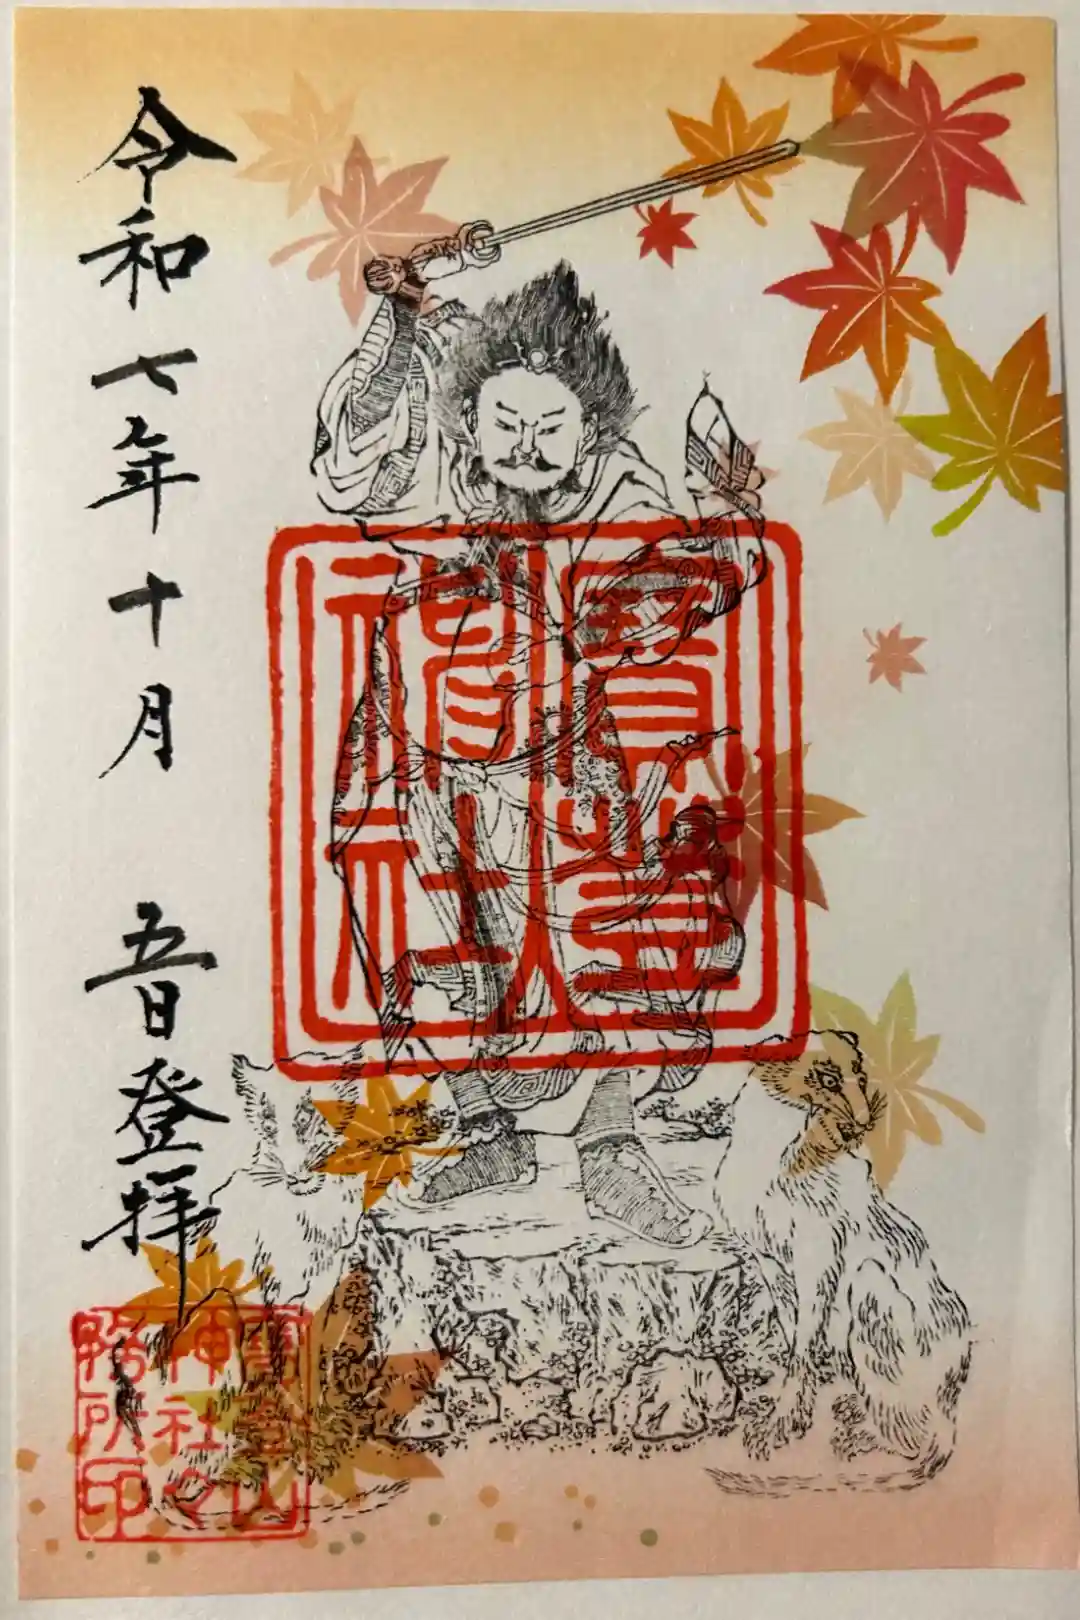 令和七年十月 五日登拝
寳登
神社
寳登山
神社之
務所印